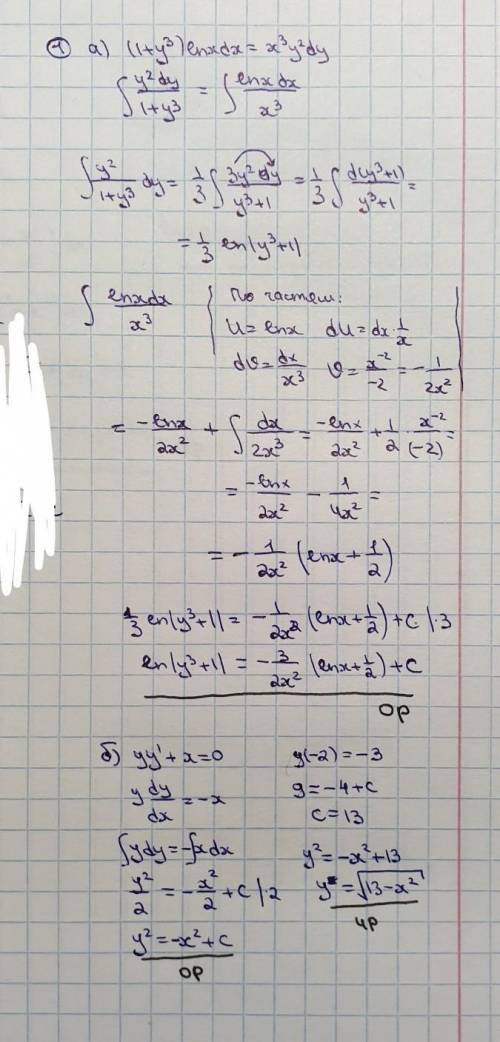 ① а) (1+y³)lnxdx = x³y²dy
∫ y²dy/(1+y³) = ∫ lnxdx/x³
∫ y²/(1+y³) dy = 1/3 ∫ 3y²dy/(y³+1) = 1/3 ∫ d(y³+1)/(y³+1) =
= 1/3 ln|y³+1|
∫ lnxdx/x³ | По частям:
U = lnx dU = dx·1/x
dv = dx/x³ v = x⁻²/-2 = -1/2x²
= -lnx/2x² + ∫ dx/2x³ = -lnx/2x² + 1/2 · x⁻²/(-2) =
= -lnx/2x² - 1/4x² =
= - 1/2x² (lnx + 1/2)
1/3 ln|y³+1| = - 1/2x² (lnx + 1/2) + C |·3
ln|y³+1| = - 3/2x² (lnx + 1/2) + C
ОР
б) yy' + x = 0
y dy/dx = -x
∫ydy = -∫xdx
y²/2 = - x²/2 + C |·2
y² = -x² + C
ОР
y(-2) = -3
9 = -4 + C
C = 13
y² = -x² + 13
y = √(13 - x²)
ЧР